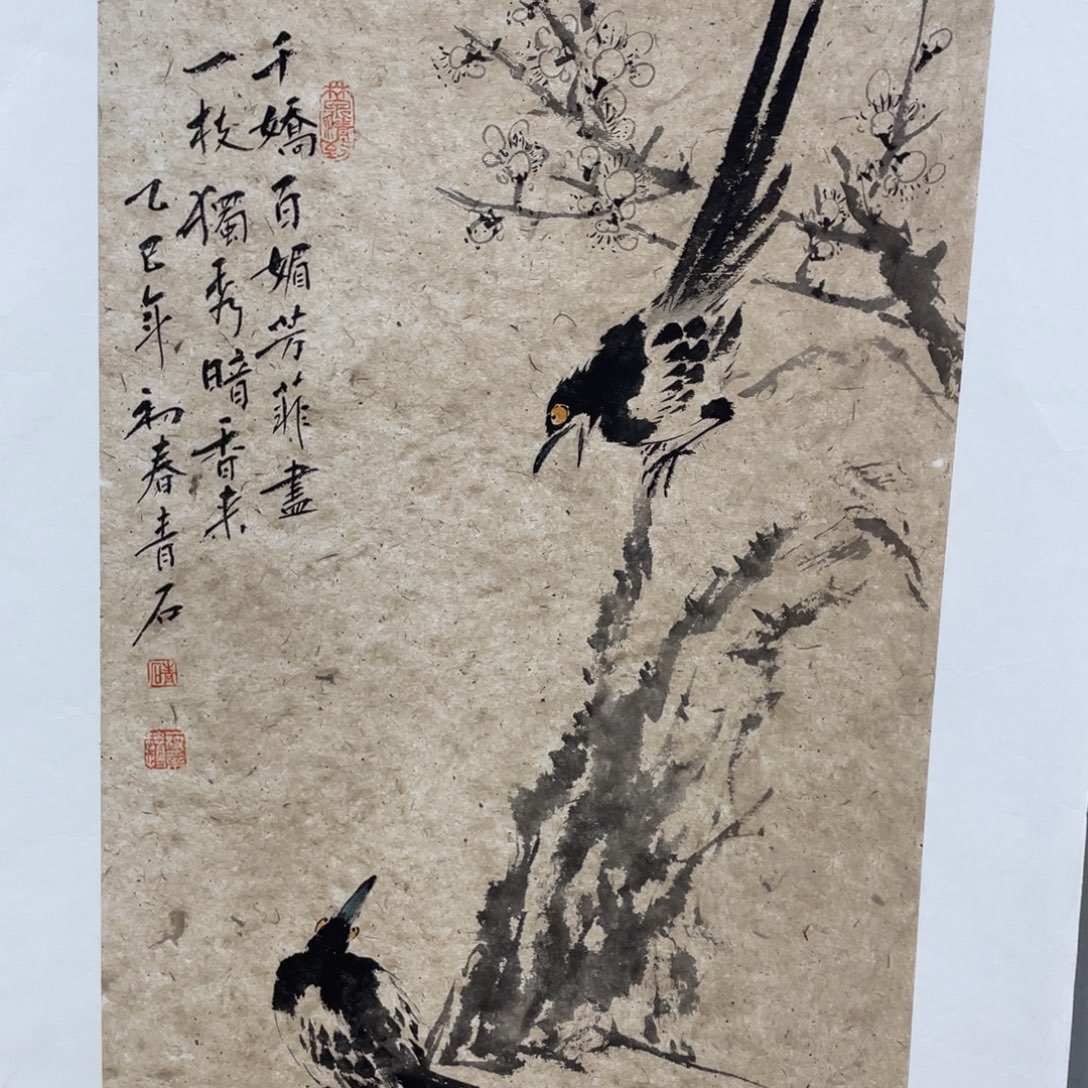 千嬌百媚芳菲盡
一枝獨秀暗香来
乙巳年初春青石